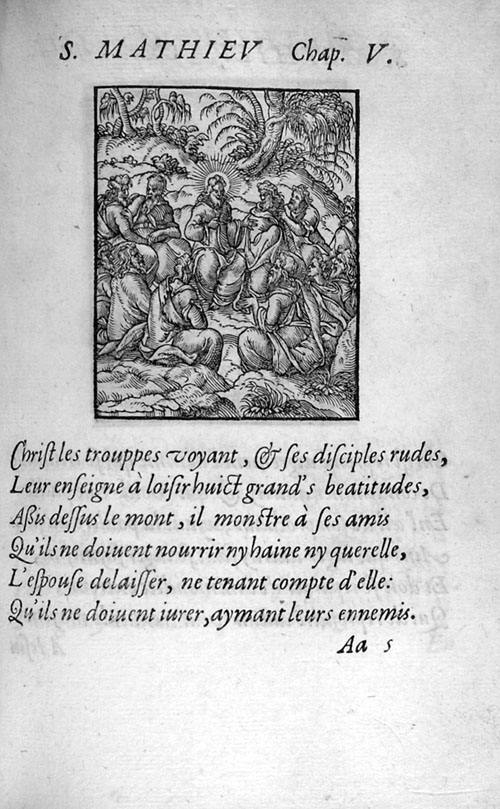 S. MATHIEV Chap. V.
Christ les trouppes voyant, & ses disciples rudes,
Leur enseigne à loisir huict grand's beatitudes,
Aßis dessus le mont, il monstre à ses amis
Qu'ils ne doiuent nourrir ny haine ny querelle,
L'espouse delaisser, ne tenant compte d'elle:
Qu'ils ne doiuent iurer, aymant leurs ennemis.
Aa 5